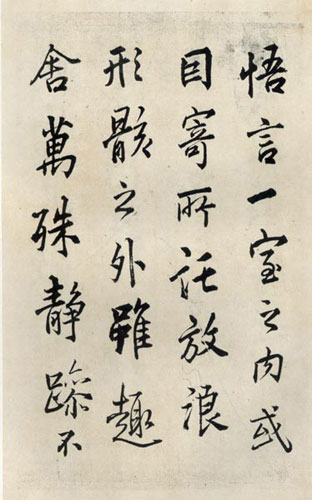 悟言一室之内或
因寄所託放浪
形骸之外雖趣
舍萬殊静躁不